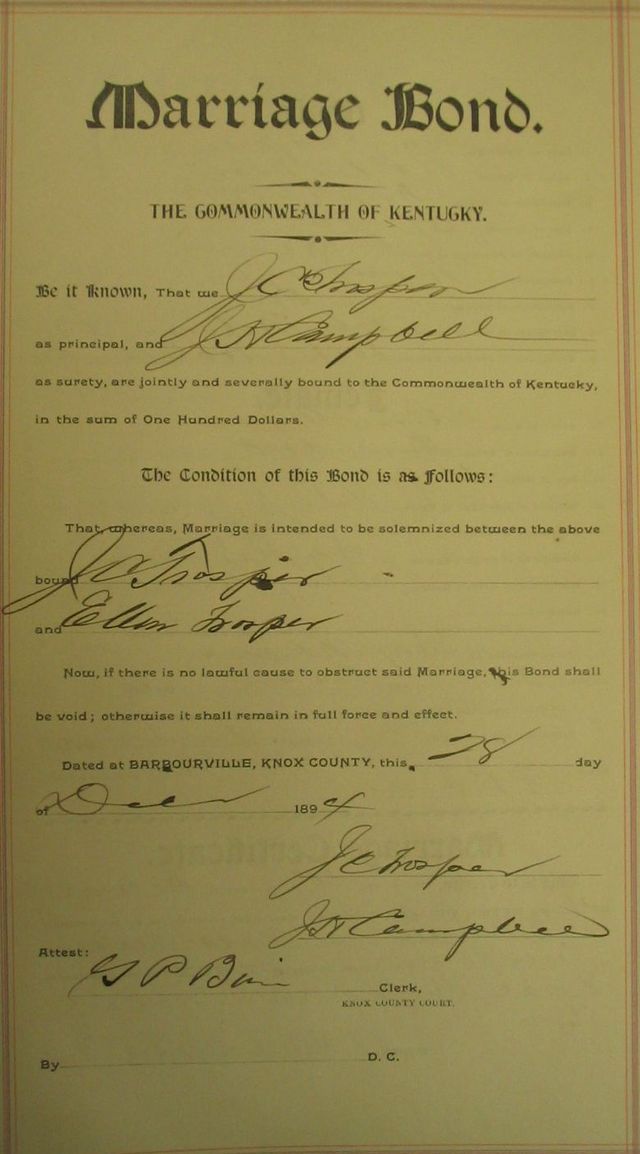 Marriage Bond.
THE COMMONWEALTH OF KENTUCKY.
Be it Known, That we J C Trosper
as principal, and J H Campbell
as surety, are jointly and severally bound to the Commonwealth of Kentucky,
in the sum of One Hundred Dollars.
The Condition of this Bond is as Follows:
That, whereas, Marriage is intended to be solemnized between the above
bound J C Trosper
and Ellen Trosper
Now, if there is no lawful cause to obstruct said Marriage, this Bond shall
be void; otherwise it shall remain in full force and effect.
Dated at BARBOURVILLE, KNOX COUNTY, this 28 day
of Dec 1894
J C Trosper
J H Campbell
Attest:
G P Clerk,
KNOX COUNTY COURT.
By D. C.